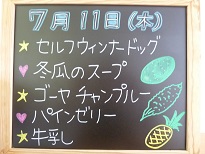 7月11日(木)
★セルフウィンナードッグ
♥冬瓜のスープ
★ゴーヤチャンプルー
♥パインゼリー
★牛乳